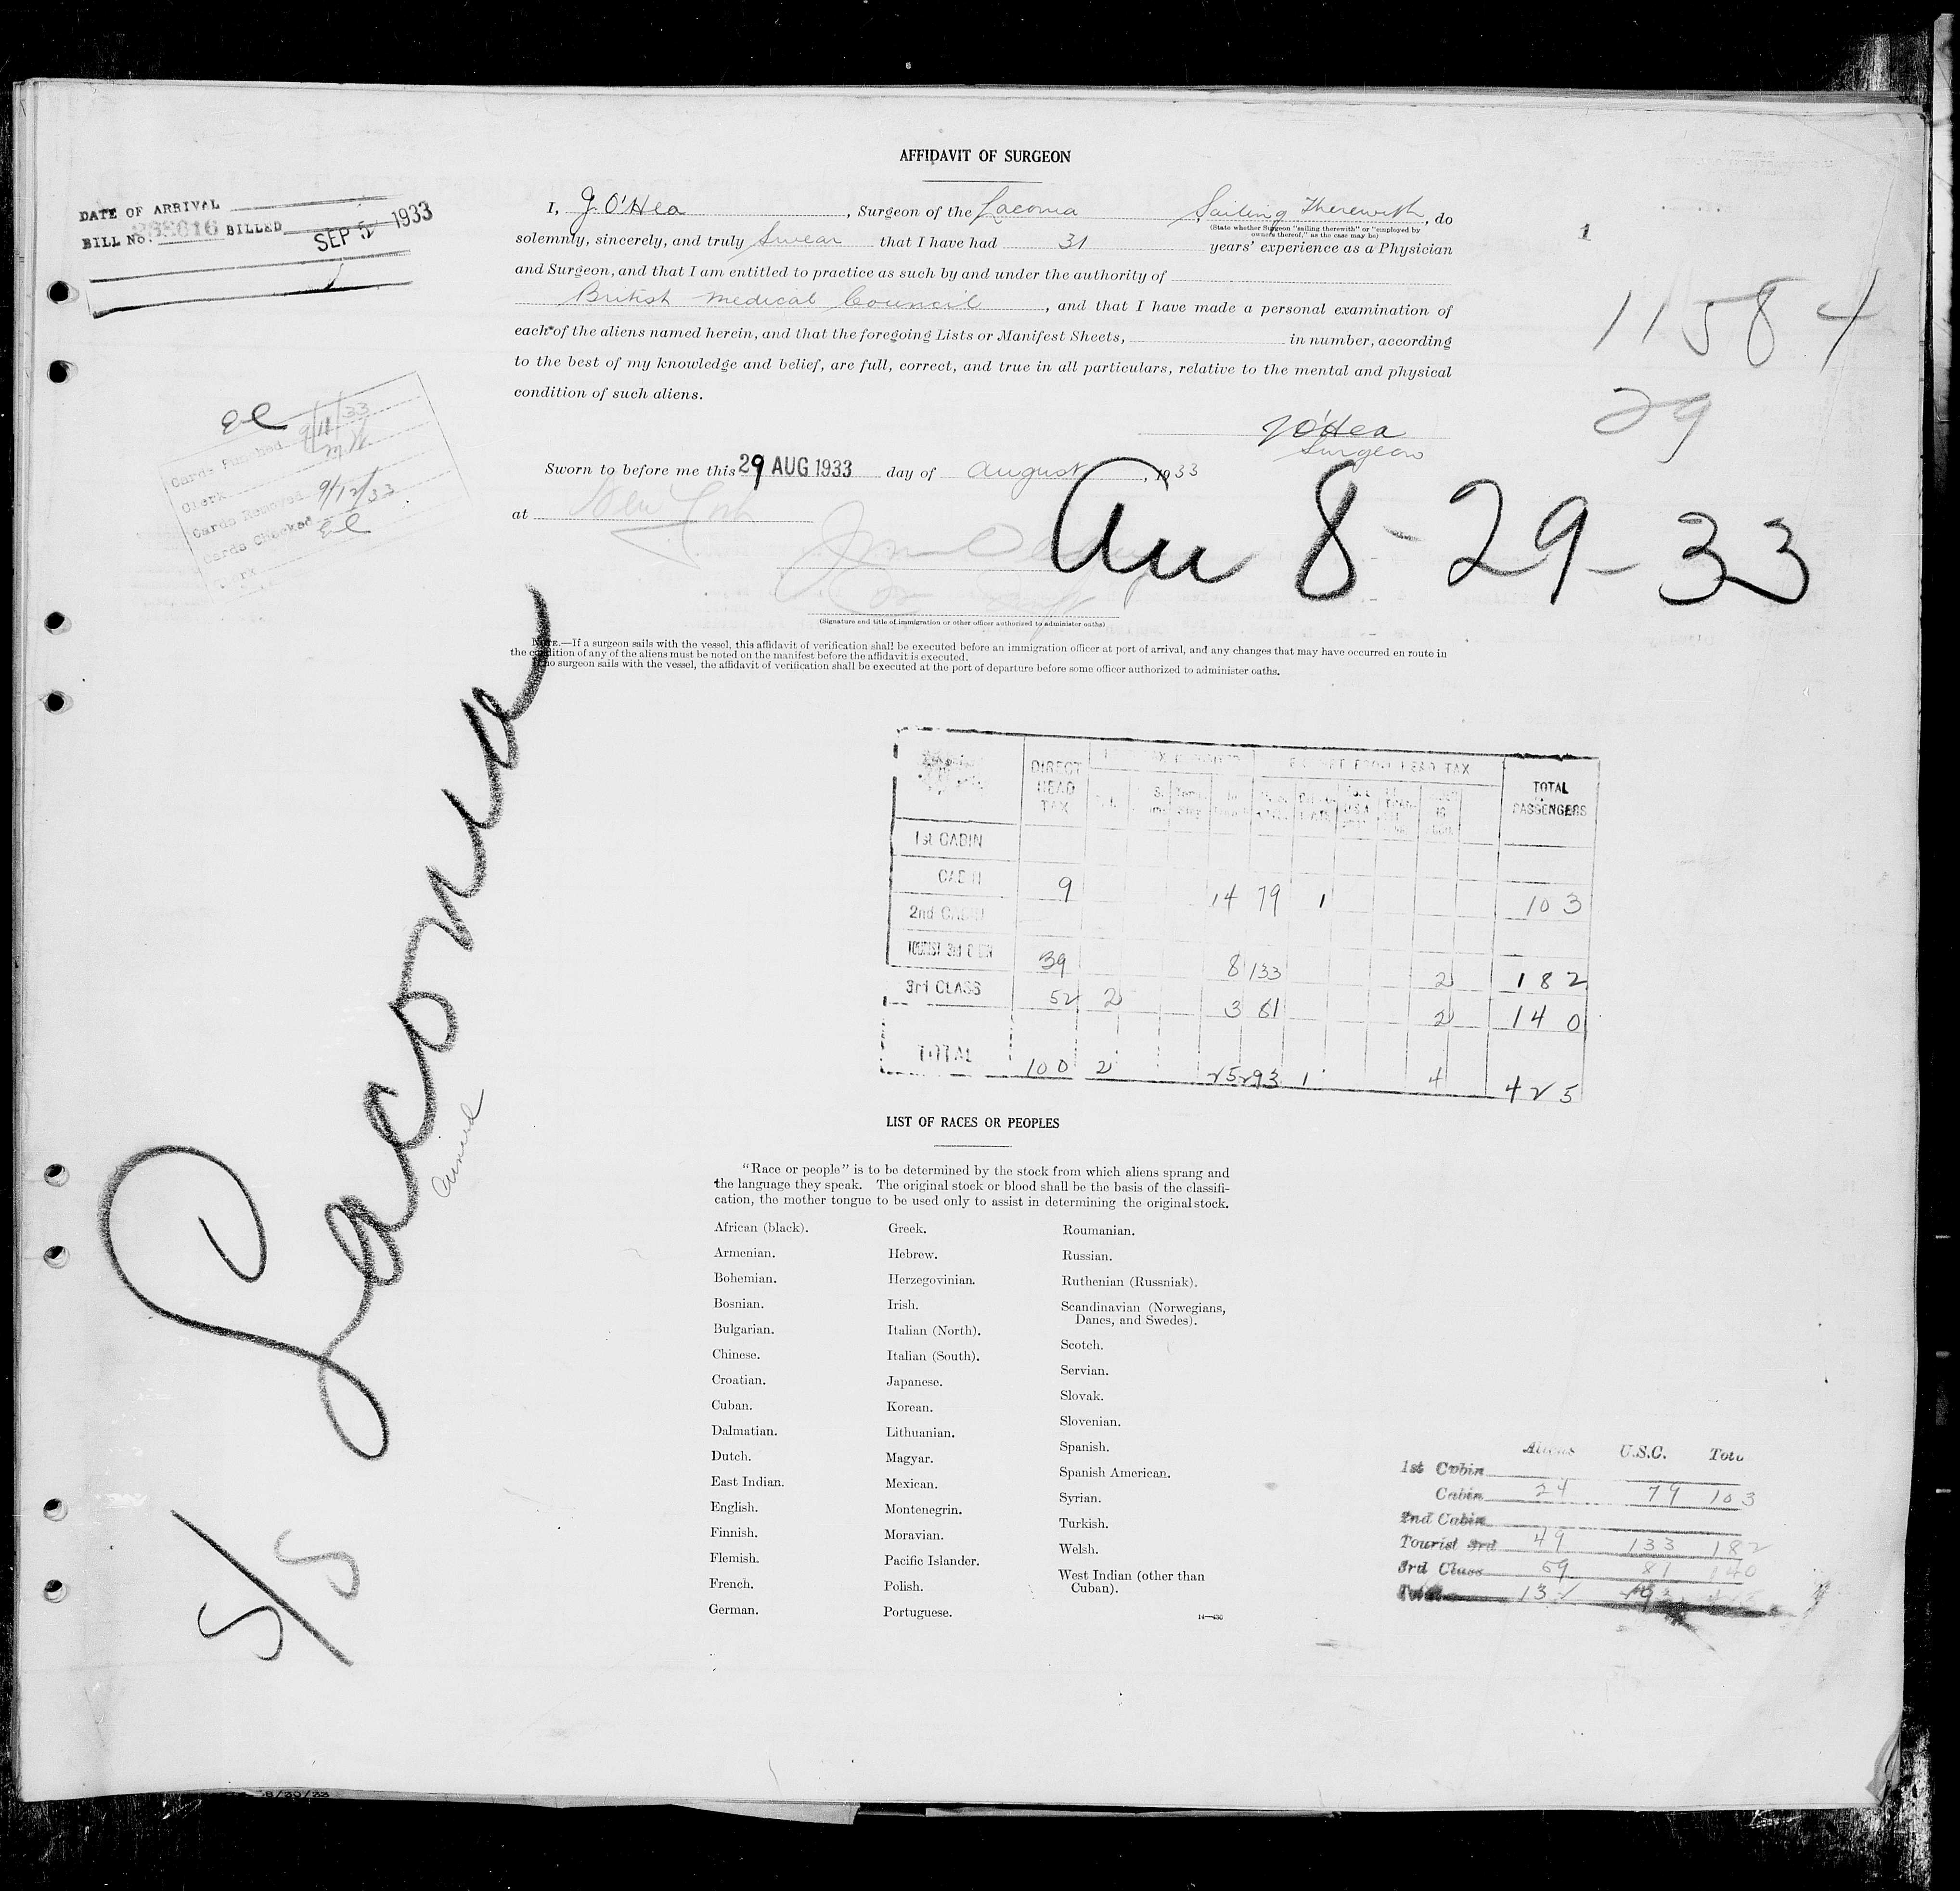 AFFIDAVIT OF SURGEON
DATE OF ARRIVAL
BILL No. BILLED SEP 5 1933
I, J. O'Hea, Surgeon of the Laconia Sailing Therewith, do
(State whether Surgeon "sailing therewith" or "employed by
owners thereof," as the case may be)
solemnly, sincerely, and truly Swear that I have had 31 years' experience as a Physician
and Surgeon, and that I am entitled to practice as such by and under the authority of
British Medical Council, and that I have made a personal examination of
each of the aliens named herein, and that the foregoing Lists or Manifest Sheets, in number, according
to the best of my knowledge and belief, are full, correct, and true in all particulars, relative to the mental and physical
condition of such aliens.
1
1158
29
J O'Hea
Surgeon
Sworn to before me this 29 AUG 1933 day of August, 1933
at New York
8-29-33
Cards Punched 9/11/33
Clerk
Cards Removed 9/12/33
Cards Checked
(Signature and title of immigration or other officer authorized to administer oaths)
NOTE.—If a surgeon sails with the vessel, this affidavit of verification shall be executed before an immigration officer at port of arrival, and any changes that may have occurred en route in
the condition of any of the aliens must be noted on the manifest before the affidavit is executed.
If no surgeon sails with the vessel, the affidavit of verification shall be executed at the port of departure before some officer authorized to administer oaths.
S/S Laconia
Cunard
DIRECT HEAD TAX
FROM HEAD TAX
TOTAL PASSENGERS
1st CABIN
CABIN 9 14 79 1 103
2nd CABIN
TOURIST 3rd CABIN 39 8 133 2 182
3rd CLASS 52 2 3 81 2 140
TOTAL 100 2 25 293 1 4 425
LIST OF RACES OR PEOPLES
"Race or people" is to be determined by the stock from which aliens sprang and
the language they speak. The original stock or blood shall be the basis of the classifi-
cation, the mother tongue to be used only to assist in determining the original stock.
African (black).
Armenian.
Bohemian.
Bosnian.
Bulgarian.
Chinese.
Croatian.
Cuban.
Dalmatian.
Dutch.
East Indian.
English.
Finnish.
Flemish.
French.
German.
Greek.
Hebrew.
Herzegovinian.
Irish.
Italian (North).
Italian (South).
Japanese.
Korean.
Lithuanian.
Magyar.
Mexican.
Montenegrin.
Moravian.
Pacific Islander.
Polish.
Portuguese.
Roumanian.
Russian.
Ruthenian (Russniak).
Scandinavian (Norwegians,
Danes, and Swedes).
Scotch.
Servian.
Slovak.
Slovenian.
Spanish.
Spanish American.
Syrian.
Turkish.
Welsh.
West Indian (other than
Cuban).
Aliens U.S.C. Total
1st Cabin
Cabin 24 79 103
2nd Cabin
Tourist 3rd 49 133 182
3rd Class 59 81 140
Total